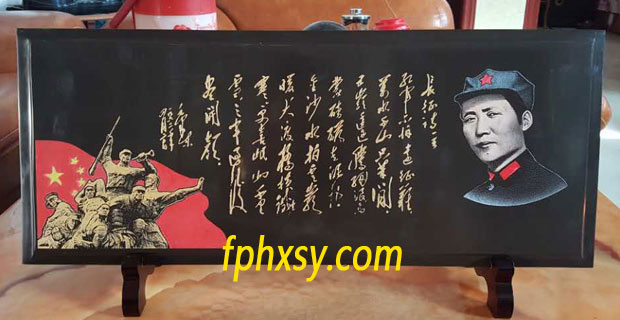 长征诗一首
红军不怕远征难
万水千山只等闲
五岭逶迤腾细浪乌
蒙磅礴走泥丸
金沙水拍云崖
暖大渡桥横铁索
寒更喜岷山千里
雪三军过后
尽开颜
毛泽东
fphxsy.com